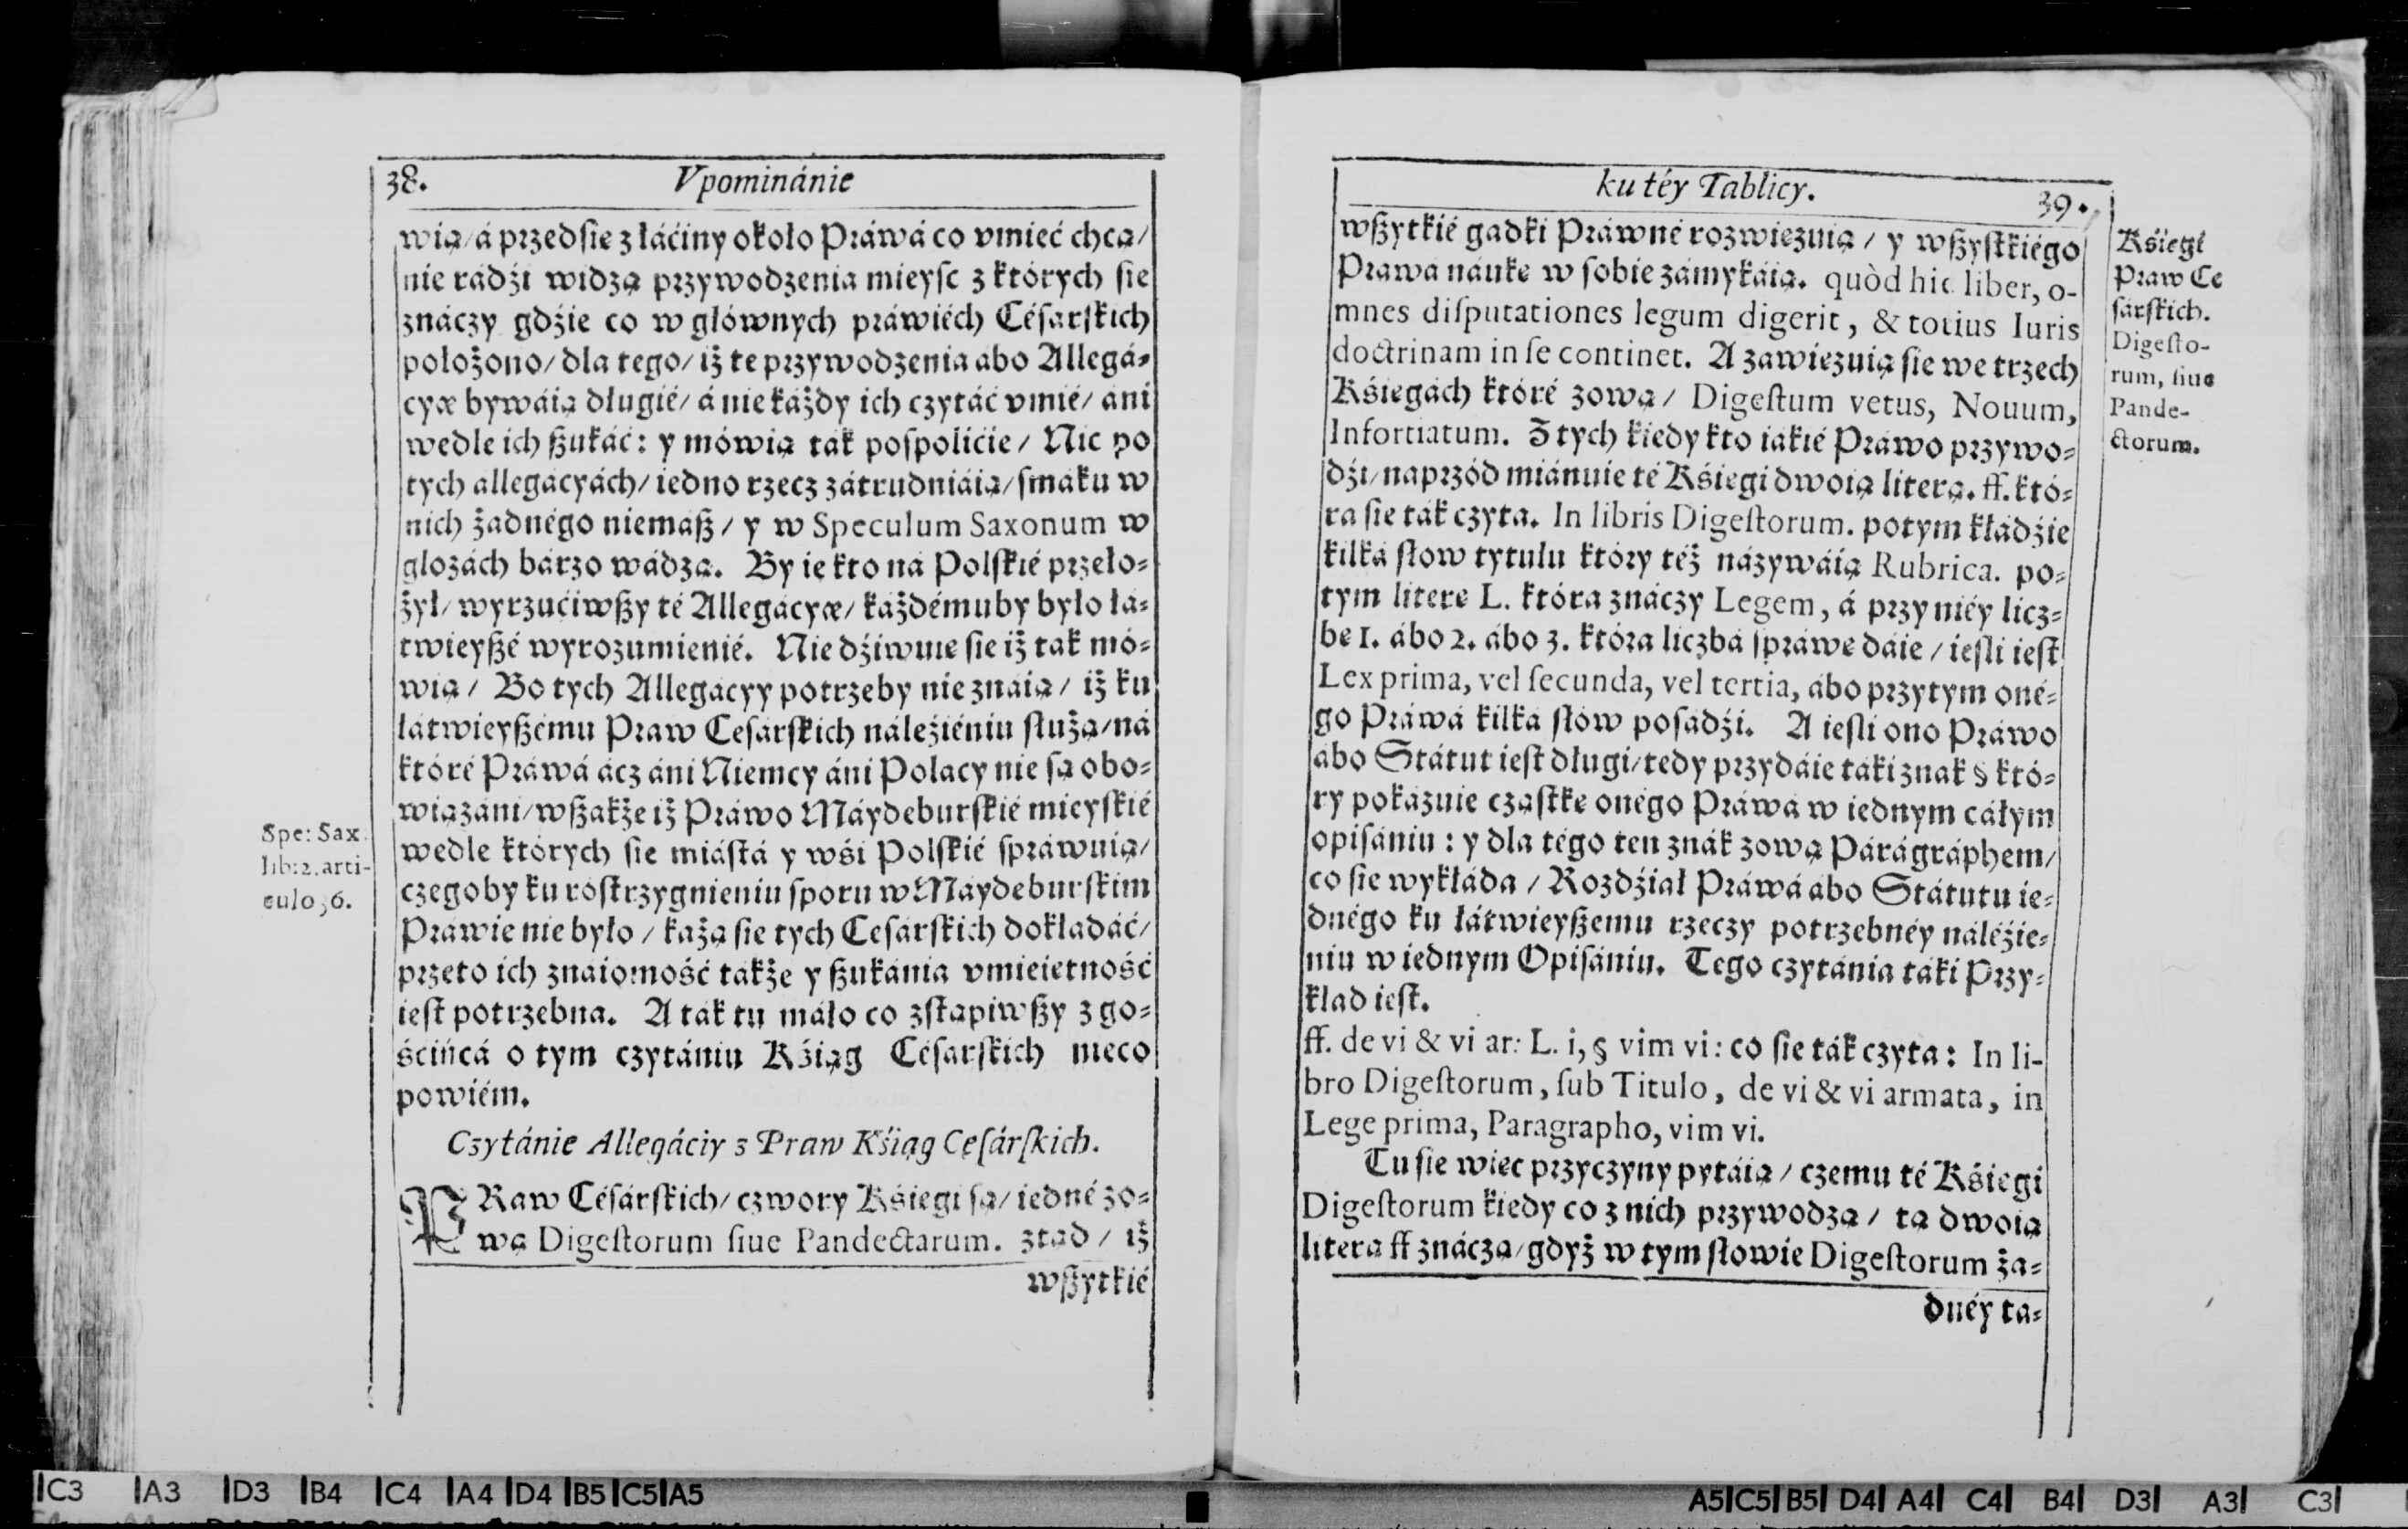 38. Vpominánie
wią/ á przedſie z łáćiny około Práwá co vmieć chcą/
nie rádźi widzą przywodzenia mieyſc z których ſie
znáczy gdźie co w głównych práwiéch Céſarſkich
położono/ dla tego/ iż te przywodzenia abo Allegá-
cyæ bywáią długié/ á nie káżdy ich czytáć vmié/ áni
wedle ich ßukáć: y mówią ták poſpolicie/ Nic po
tych allegácyách/ iedno rzecz zátrudniáią/ ſmáku w
nich żadnégo niemáß/ y w Speculum Saxonum w
glozách bárzo wádzą. By ie kto ná Polſkié przeło-
żył/ wyrzućiwßy té Allegácyæ/ káżdémuby było łá-
twieyßé wyrozumienié. Nie dźiwuie ſie iż ták mó-
wią/ Bo tych Allegácyy potrzeby nie znáią/ iż ku
łátwieyßému Praw Ceſárſkich náleźiéniu ſłużą/ ná
któré Práwá ácz áni Niemcy áni Polacy nie ſą obo-
wiązáni/ wßákże iż Práwo Máydeburſkié mieyſkié
wedle których ſie miáſtá y wśi Polſkié ſpráwuią/
czegoby ku roſtrzygnieniu ſporu w Máydeburſkim
Práwie nie było/ każą ſie tych Ceſárſkich dokłádáć/
przeto ich znáiomość tákże y ßukánia vmieietność
ieſt potrzebna. A ták tu máło co zſtąpiwßy z go-
śćińcá o tym czytániu Kśiąg Céſárſkich nieco
powiém.
Spe: Sax.
lib: 2. arti-
culo 36.
Czytánie Allegáciy z Praw Kśiąg Ceſárſkich.
PRaw Céſárſkich/ czwory Kśiegi ſą/ iedné zo-
wą Digeſtorum ſiue Pandectarum. ztąd/ iż
wßytkié
ku téy Tablicy. 39.
wßytkié gadki Práwné rozwiezuią/ y wßyſtkiégo
Práwá náuke w ſobie zámykáią. quòd hic liber, o-
mnes diſputationes legum digerit, & totius Iuris
doctrinam in ſe continet. A záwiezuią ſie we trzech
Kśiegách któré zową/ Digeſtum vetus, Nouum,
Infortiatum. Z tych kiedy kto iákié Práwo przywo-
dźi/ naprzód miánuie té Kśiegi dwoią literą. ff. któ-
ra ſie ták czyta. In libris Digeſtorum. potym kłádźie
kilká ſłow tytułu który téż názywáią Rubrica. po-
tym litere L. która znáczy Legem, á przy niéy licz-
be 1. ábo 2. ábo 3. która liczbá ſpráwe dáie/ ieſli ieſt
Lex prima, vel ſecunda, vel tertia, ábo przytym oné-
go Práwá kilká ſłów poſádźi. A ieſli ono Práwo
ábo Státut ieſt długi/ tedy przydáie táki znak § któ-
ry pokázuie cząſtke onégo Práwá w iednym cáłym
opiſániu: y dla tégo ten znák zową Párágráphem/
co ſie wykłáda/ Rozdźiał Práwá ábo Státutu ie-
dnégo ku łátwieyßemu rzeczy potrzebnéy náléźie-
niu w iednym Opiſániu. Tego czytánia táki Przy-
kład ieſt.
ff. de vi & vi ar: L. i, § vim vi: co ſie ták czyta: In li-
bro Digeſtorum, ſub Titulo, de vi & vi armata, in
Lege prima, Paragrapho, vim vi.
Tu ſie wiec przyczyny pytáią/ czemu té Kśiegi
Digeſtorum kiedy co z nich przywodzą/ tą dwoią
literą ff znáczą/ gdyż w tym ſłowie Digeſtorum ża-
dnéy ta-
Kśiegi
Praw Ce
ſárſkich.
Digeſto-
rum, ſiue
Pande-
ctorum.
|C3 |A3 |D3 |B4 |C4 |A4 |D4 |B5 |C5 |A5
A5| C5| B5| D4| A4| C4| B4| D3| A3| C3|